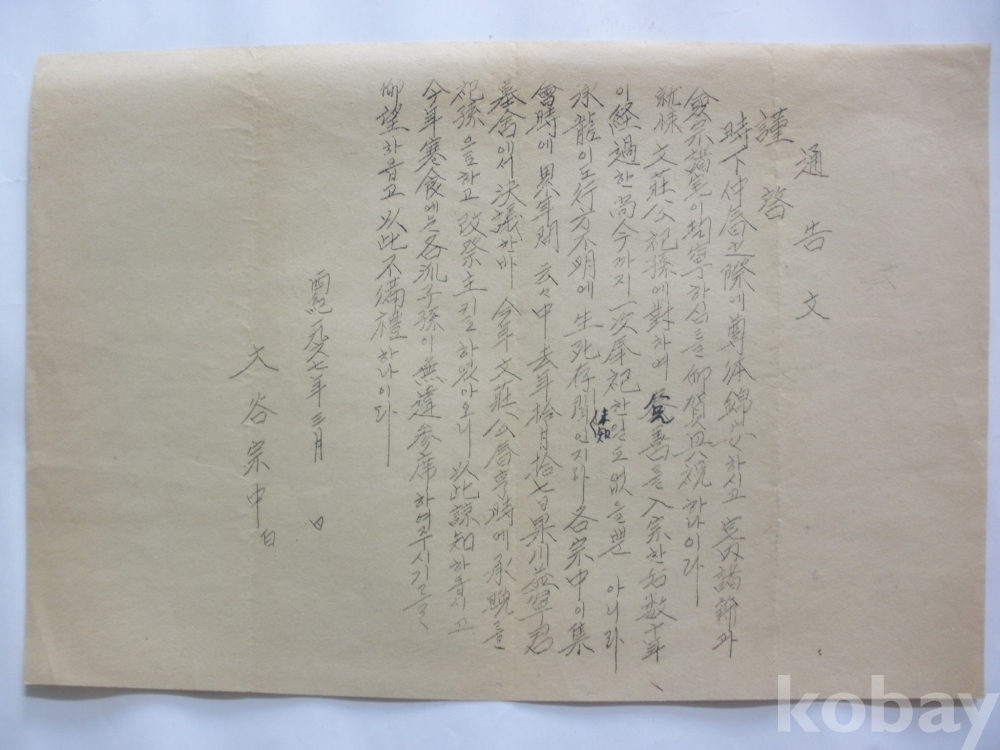 通告文
謹啓
時下仲春之際에 尊体錦安하시고 宅內諸節과
會宗諸宅이 均寧하심을 仰賀且祝하나이다
就悚 文莊公祀孫에 對하여 善을 入宗한 后 数十年
이 経過한 尚今까지 一次奉祀한 일도 없을뿐 아니라
承龍이도 行方不明에 生死存聞 未知 인지라 各宗中이 集
會時에 累年間 云云中 去年拾月拾七日 果川 君
墓舍에서 決議한바 今年文莊公春享時에 承晩을
祀孫으로하고 改祭主키로 하였아오니 以此諒知하옵시고
今年寒食에는 各派子孫이 無違參席하여주시기를
仰望하옵고 以此不備禮하나이다
西紀 一九六七年 三月 日
文谷宗中 白
kobay